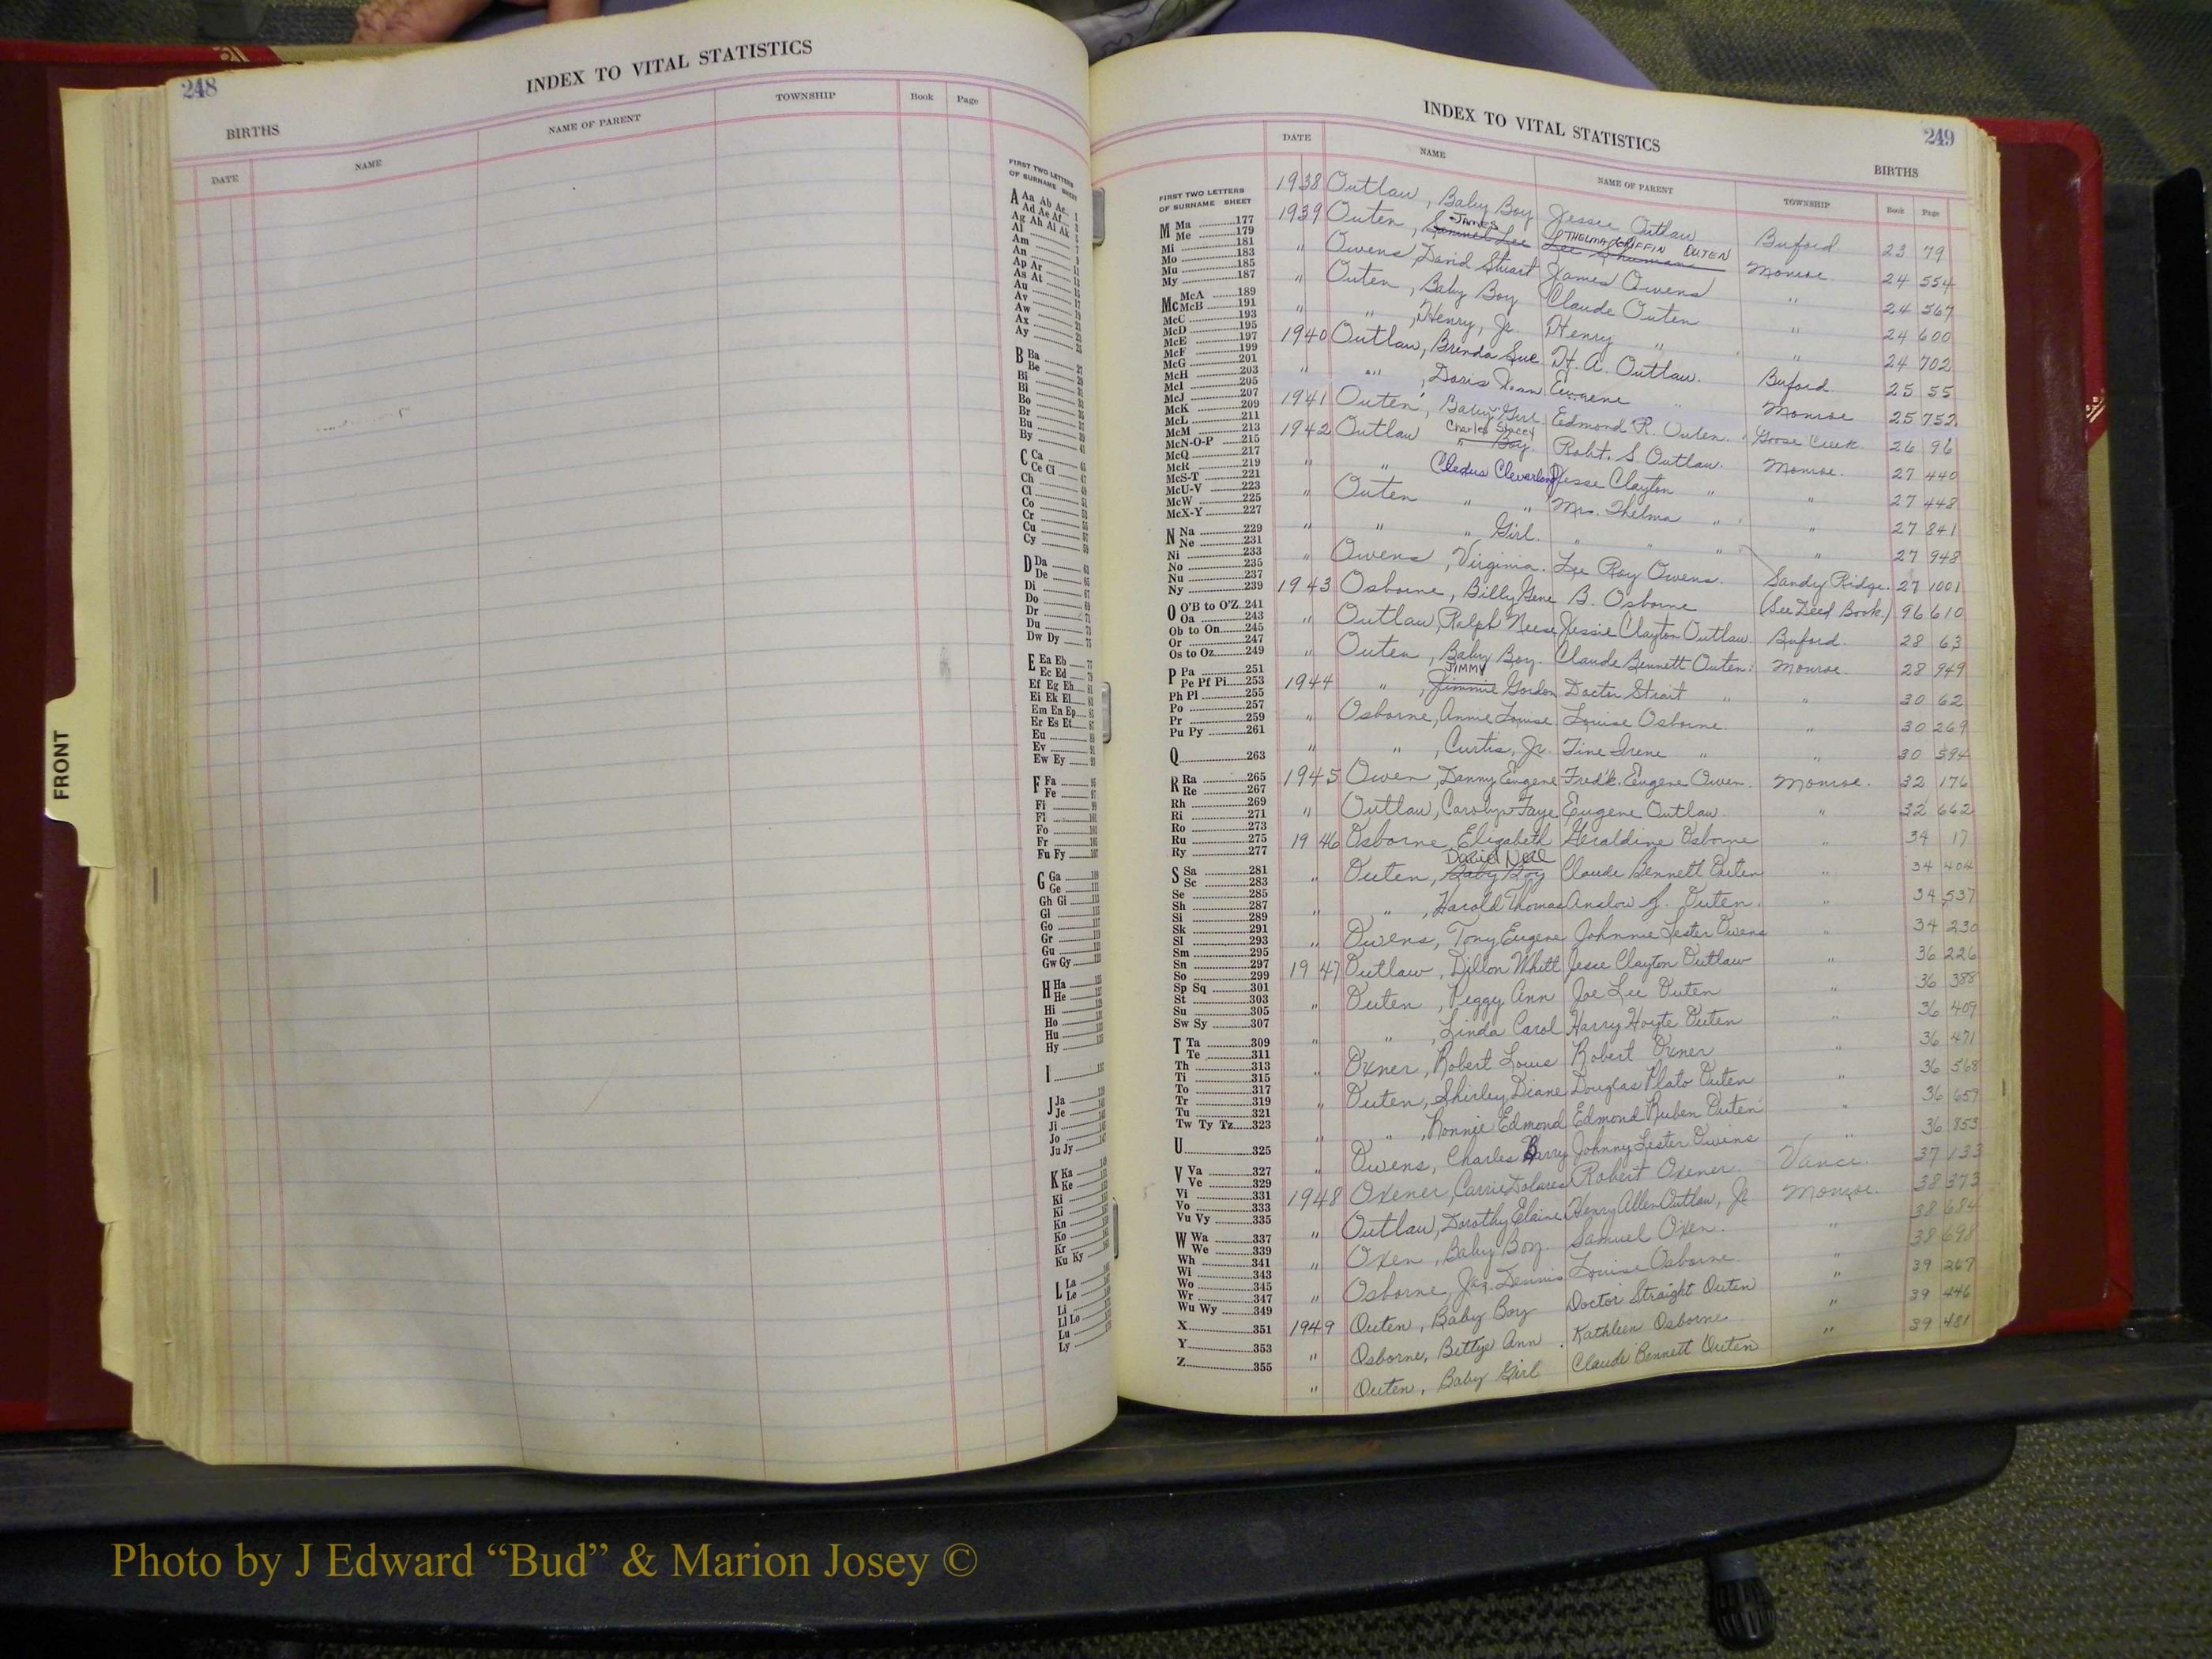 248
INDEX TO VITAL STATISTICS
BIRTHS
DATE NAME NAME OF PARENT TOWNSHIP Book Page
FIRST TWO LETTERS
OF SURNAME SHEET
A Aa Ab Ac
Ad Ae Af
Ag Ah Ai Ak
Al
Am
An
Ap Ar
As At
Au
Av
Aw
Ax
Ay
B Ba
Be
Bi
Bl
Bo
Br
Bu
By
C Ca
Ce Ci
Ch
Cl
Co
Cr
Cu
Cy
D Da
De
Di
Do
Dr
Du
Dw Dy
E Ea Eb
Ec Ed
Ef Eg Eh
Ei Ek El
Em En Ep
Er Es Et
Eu
Ev
Ew Ey
F Fa
Fe
Fi
Fl
Fo
Fr
Fu Fy
G Ga
Ge
Gh Gi
Gl
Go
Gr
Gu
Gw Gy
H Ha
He
Hi
Ho
Hu
Hy
I
J Ja
Je
Ji
Jo
Ju Jy
K Ka
Ke
Ki
Kn
Ko
Kr
Ku Ky
L La
Le
Li
Ll Lo
Lu
Ly
FRONT
249
INDEX TO VITAL STATISTICS
BIRTHS
DATE NAME NAME OF PARENT TOWNSHIP Book Page
FIRST TWO LETTERS
OF SURNAME SHEET
M Ma 177
Me 179
Mi 181
Mo 183
Mu 185
My 187
Mc McA 189
McB 191
McC 193
McD 195
McE 197
McF 199
McG 201
McH 203
McI 205
McJ 207
McK 209
McL 211
McM 213
McN-O-P 215
McQ 217
McR 219
McS-T 221
McU-V 223
McW 225
McX-Y 227
N Na 229
Ne 231
Ni 233
No 235
Nu 237
Ny 239
O O'B to O'Z 241
Oa 243
Ob to On 245
Or 247
Os to Oz 249
P Pa 251
Pe Pf Pi 253
Ph Pl 255
Po 257
Pr 259
Pu Py 261
Q 263
R Ra 265
Re 267
Rh 269
Ri 271
Ro 273
Ru 275
Ry 277
S Sa 281
Sc 283
Se 285
Sh 287
Si 289
Sk 291
Sl 293
Sm 295
Sn 297
So 299
Sp Sq 301
St 303
Su 305
Sw Sy 307
T Ta 309
Te 311
Th 313
Ti 315
To 317
Tr 319
Tu 321
Tw Ty Tz 323
U 325
V Va 327
Ve 329
Vi 331
Vo 333
Vu Vy 335
W Wa 337
We 339
Wh 341
Wi 343
Wo 345
Wr 347
Wu Wy 349
X 351
Y 353
Z 355
1938 Outlaw, Baby Boy Jessie Outlaw Buford 23 79
JAMES THELMA GRIFFIN OUTEN
1939 Outen, Samuel Lee Monroe 24 554
" Owens, David Stuart James Owens " 24 567
" Outen, Baby Boy Claude Outen " 24 600
" " , Henry, Jr. Henry " " 24 702
1940 Outlaw, Brenda Sue H. A. Outlaw. Buford 25 55
" " , Doris Jean Eugene " Monroe 25 752
1941 Outen, Baby Girl. Edmond R. Outen. Goose Creek 26 96
Charles Stacey
1942 Outlaw " Boy. Robt. S. Outlaw. Monroe. 27 440
" " Cledus Cleverland Jesse Clayton " " 27 448
" Outen " " Mrs. Thelma " " 27 841
" " " Girl. " " " " 27 948
" Owens, Virginia. Lee Roy Owens. Sandy Ridge. 27 1001
1943 Osborne, Billy Gene B. Osborne (See Deed Book) 96 610
" Outlaw, Ralph Neese Jessie Clayton Outlaw. Buford. 28 63
" Outen, Baby Boy. Claude Bennett Outen. Monroe. 28 949
JIMMY
1944 " , Jimmie Gordon Doctor Strait " " 30 62
" Osborne, Annie Louise. Louise Osborne. " 30 269
" " , Curtis, Jr. Tine Irene " " 30 594
1945 Owen, Danny Eugene Fred'k. Eugene Owen. Monroe. 32 176
" Outlaw, Carolyn Faye Eugene Outlaw. " 32 662
1946 Osborne, Elizabeth Geraldine Osborne " 34 17
David Neal
" Outen, Baby Boy Claude Bennett Outen " 34 404
" " , Harold Thomas Anslow J. Outen. " 34 537
" Owens, Tony Eugene Johnnie Lester Owens " 34 230
1947 Outlaw, Dillon Whitt Jesse Clayton Outlaw " 36 226
" Outen, Peggy Ann Joe Lee Outen " 36 388
" " , Linda Carol Harry Hoyte Outen " 36 409
" Oxner, Robert Louis Robert Oxner " 36 471
" Outen, Shirley Diane Douglas Plato Outen " 36 568
" " , Ronnie Edmond Edmond Ruben Outen " 36 659
" Owens, Charles Barry Johnny Lester Owens " 36 853
1948 Oxener, Carrie Dolores Robert Oxener. Vance. 37 133
" Outlaw, Dorothy Elaine Henry Allen Outlaw, Jr Monroe. 38 373
" Oxen, Baby Boy. Samuel Oxen. " 38 684
" Osborne, Jas. Dennis Louise Osborne. " 38 698
1949 Outen, Baby Boy Doctor Straight Outen " 39 267
" Osborne, Bettye Ann. Kathleen Osborne " 39 446
" Outen, Baby Girl Claude Bennett Outen " 39 481
Photo by J Edward “Bud” & Marion Josey ©